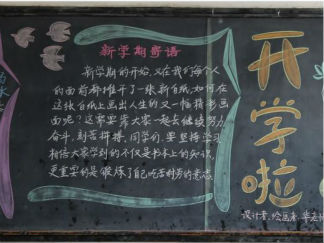 新学期寄语
新学期的开始,又在我们每个人
的面前都摊开了一张新白纸,如何在
这张白纸上画出人生的又一幅精彩画
面呢?这需要靠大家一起去继续努力,
奋斗,刻苦拼搏,同学们,要坚持学习
相信大家学到的不仅是书本上的知识,
更重要的是锻炼了自己吃苦耐劳的意志
开学啦
设计者: